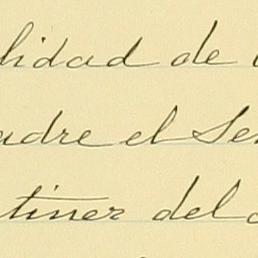 lidad de
adre el Se
tiner del